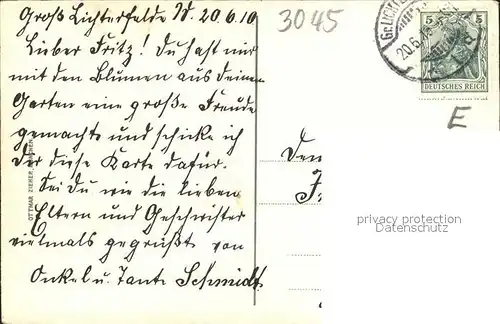 Groß Lichterfelde W. 20.6.10
3045
Lieber Fritz! Du hast mir
mit den Blumen aus Deinem
Garten eine große Freude
gemacht und schicke ich
Dir diese Karte dafür.
Sei Du wie die lieben
Eltern und Geschwister
vielmals gegrüßt von
Onkel u. Tante Schmidt
OTTMAR ZIEHER, MÜNCHEN
5 5
DEUTSCHES REICH
20.6.
E
privacy protection
Datenschutz